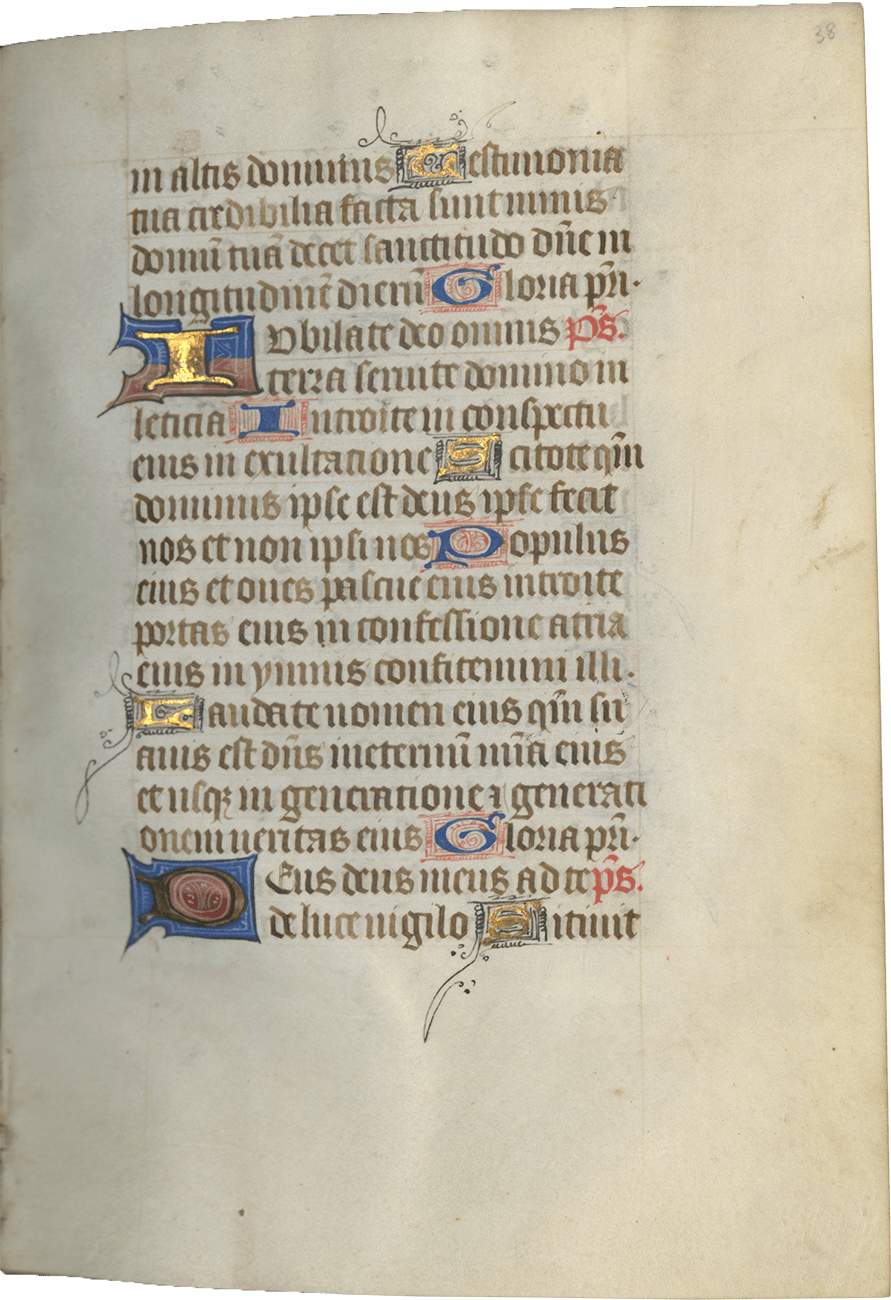 38
in altis dominus Testimonia
tua credibilia facta sunt nimis
domū tuā decet sanctitudo dn̄e in
longitudinē dierū Gloria pr̄i·
Iubilate deo omnis ps̄.
terra seruite domino in
leticia Introite in conspectu
eius in exultatione Scitote qm̄
dominus ipse est deus ipse fecit
nos et non ipsi nos Populus
eius et oues pascue eius introite
portas eius in confessione atria
eius in ymnis confitemini illi·
Laudate nomen eius qm̄ su
auis est dn̄s ineternū mīa eius
et usqꝫ in generatione ⁊ generati
onem ueritas eius Gloria pr̄i·
Deus deus meus ad te ps̄.
de luce uigilo Sitiuit